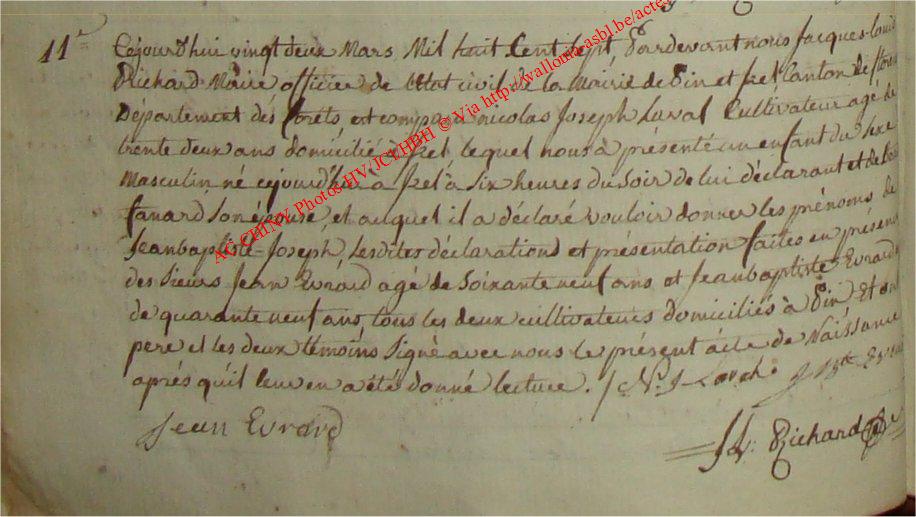 11.e Cejourd'hui vingt deux Mars Mil huit Cent Sept, Pardevant nous Jacques-Louis
Richard Maire officier de l'Etat civil de la Mairie de Pin et Izel Canton de
Département des forêts, est comparu nicolas Joseph Cultivateur agé de
trente deux ans domicilié à Izel lequel nous à présenté un enfant du Sexe
Masculin né cejourd'hui à Izel à Six heures du Soir de lui déclarant et de
fanard Son épouse, et auquel il a déclaré vouloir donner les prénoms de
Jeanbaptiste-Joseph, Lesdites déclarations et présentation faites en présence
des Sieurs Jean Evrard agé de Soixante neuf ans et Jeanbaptiste Evrard
de quarante neuf ans, tous les deux cultivateurs domiciliés à Pin Et ont
pere et les deux témoins Signé avec nous le présent acte de Naissance
après qu'il leur en a été donné lecture. / N. J
Jean Evrard
JL. Richard
AG CHINY Photos HV-JCVHBH © Via http://walloniaasbl.be/acte